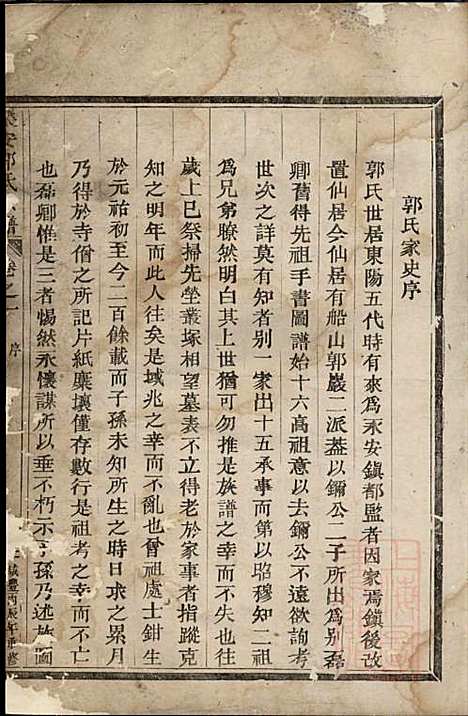 郭氏家史序
郭氏世居東陽五代時有來爲永安鎮都監者因家焉鎮後改
置仙居今仙居有船山郭巖二派蓋以鏰公二子所出爲別磊
卿舊得先祖手書圖譜始十六高祖意以去鏰公不遠欲詢考
世次之詳莫有知者別一家出十五承事而第以昭穆知二祖
爲兄弟瞭然明白其上世猶可勿推是族譜之幸而不失也往
歲上巳祭掃先塋叢塚相望墓表不立得老於家事者指蹤克
知之明年而此人往矣是域兆之幸而不亂也曾祖處士鉗生
於元祐初至今二百餘載而子孫未知所生之時日求之累月
乃得於寺僧之所記片紙棄壞僅存數行是祖考之幸而不亡
也磊卿惟是三者惕然永懷謀所以垂不朽示子孫乃述故
安郭氏 譜 卷之一 序
咸豐丙辰年重修